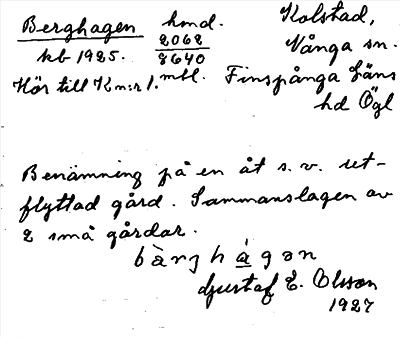 Berghagen hmd. Kolstad,
kb 1925. 2062 Vånga sn.
8640
Hör till Kn:r 1. mbl. Finspånga Läns
hd Ögl
Benämning på en åt s.v. ut-
flyttad gård. Sammanslagen av
2 små gårdar.
bàrjhágan
Gustaf E. Olsson
1927